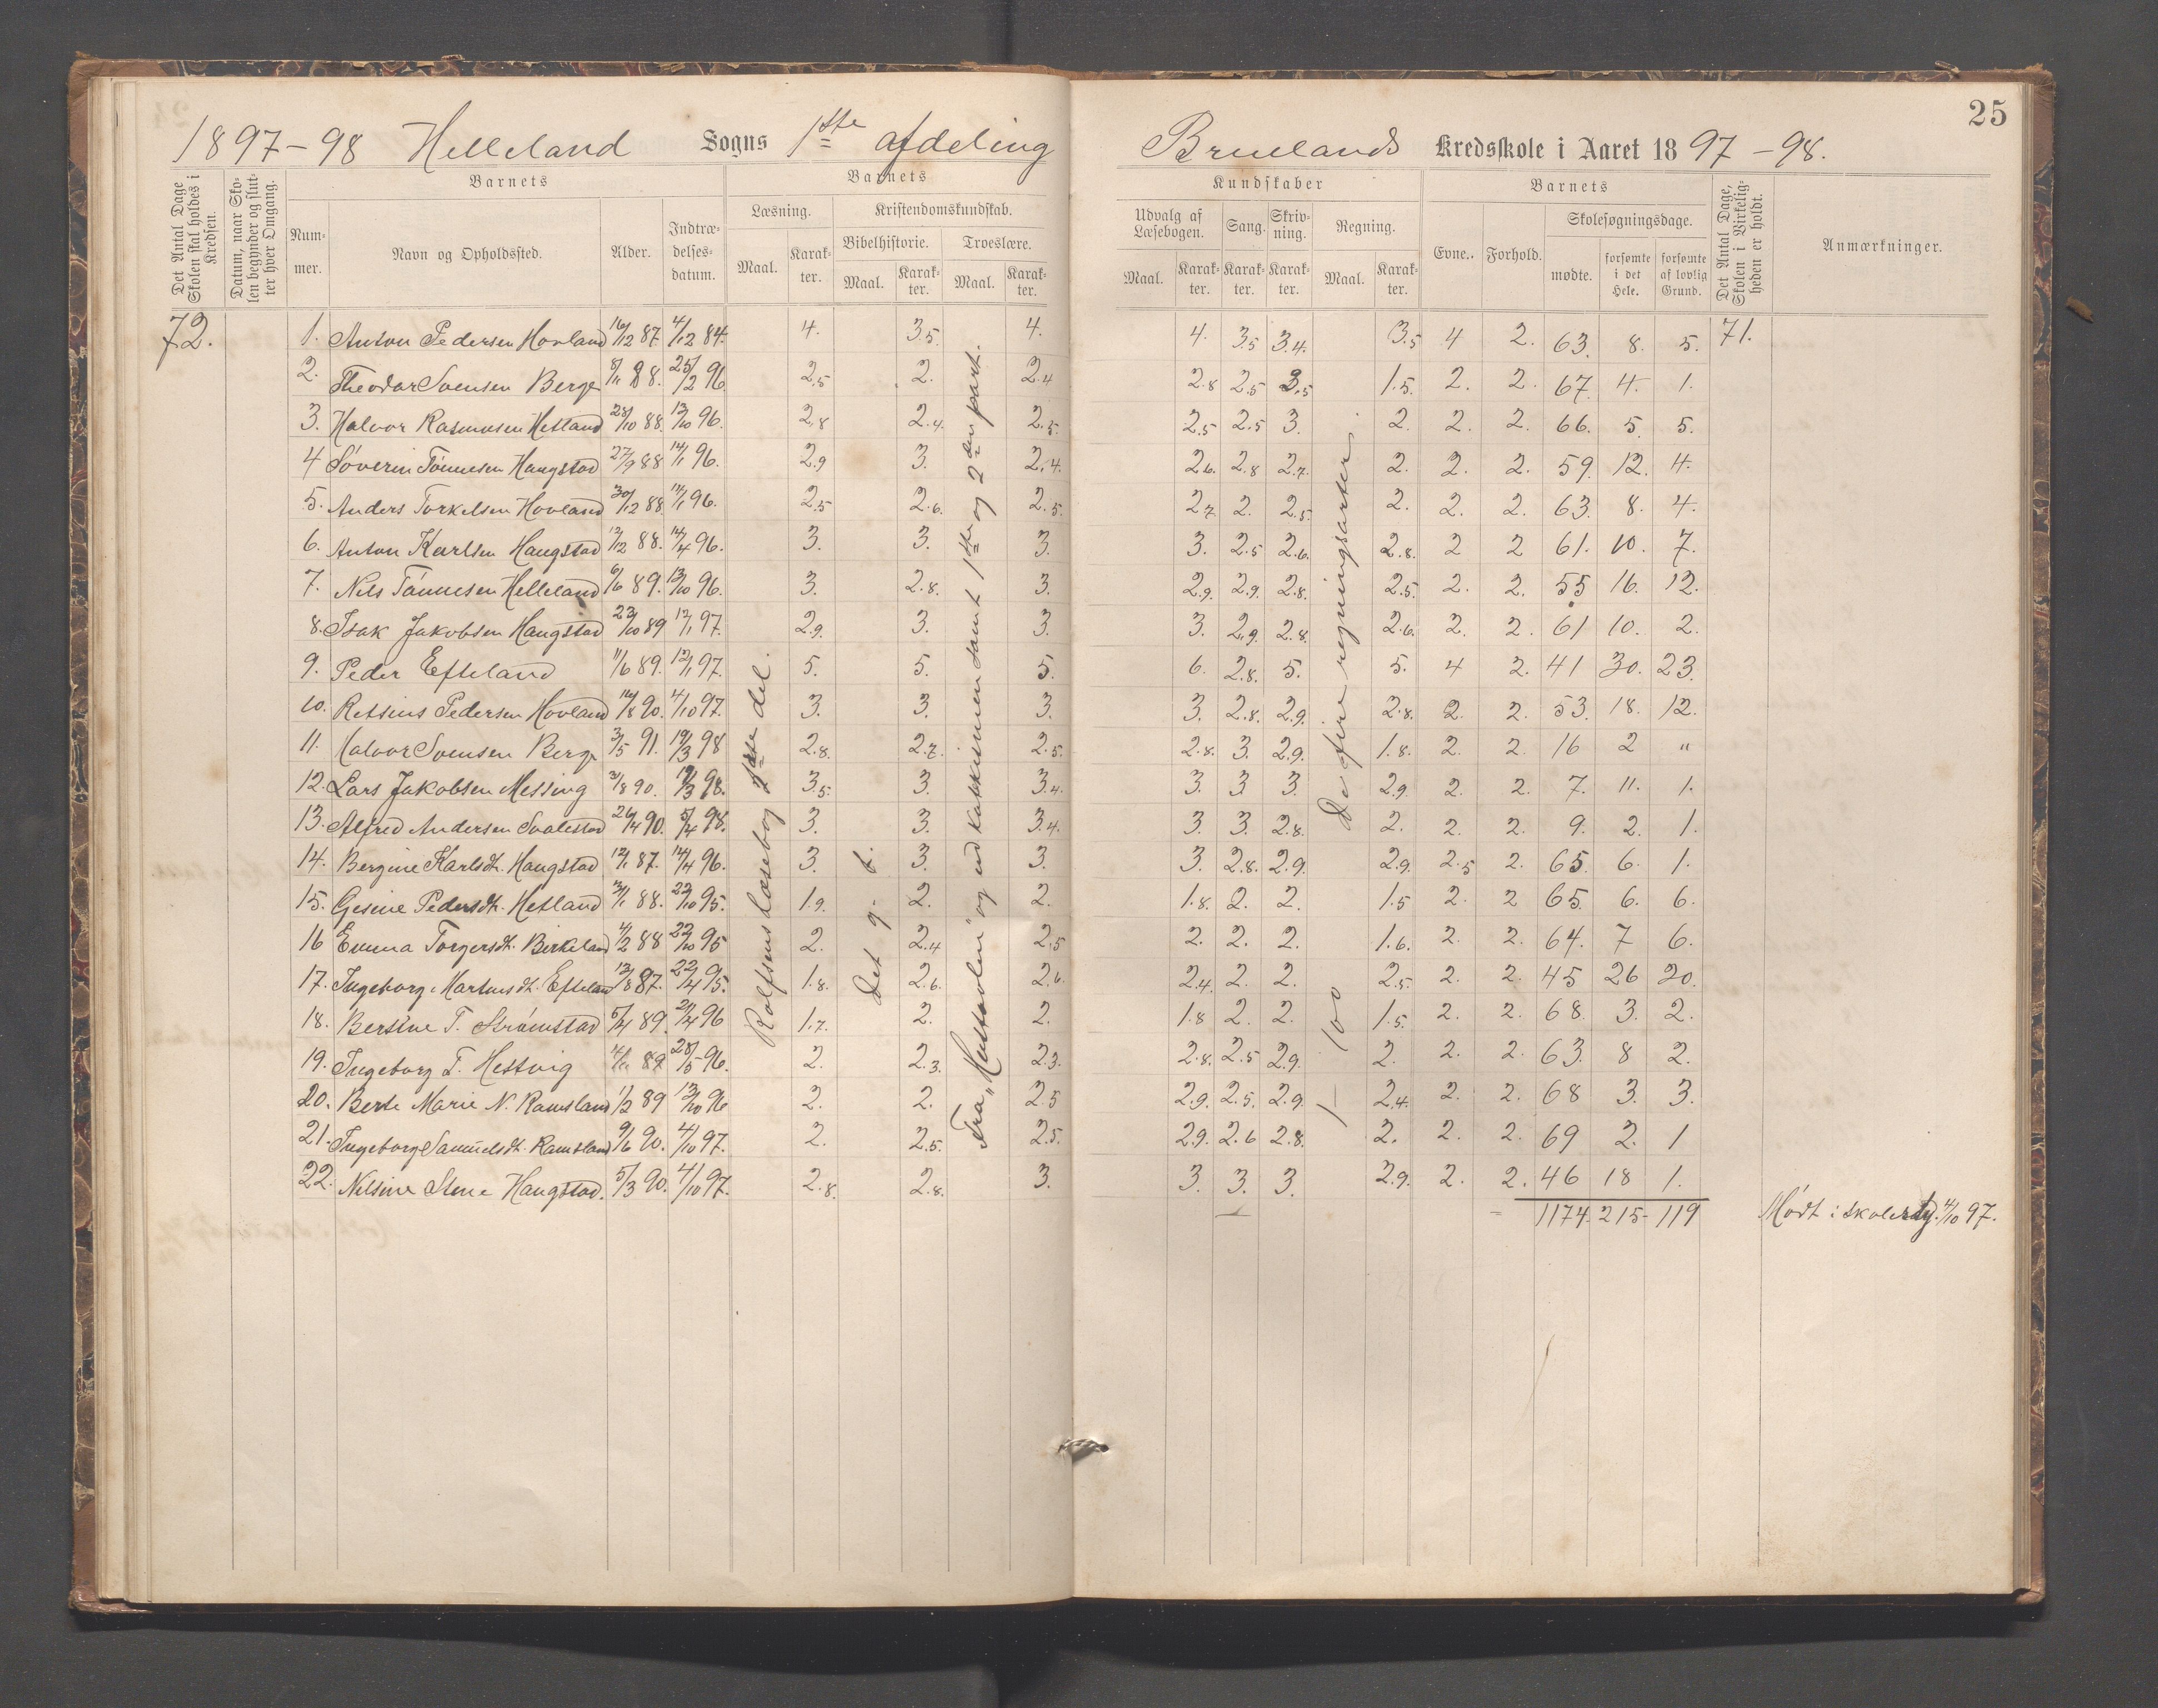 25
1897-98 Helleland Sogns 1ste afdeling Bruelands Kredsskole i Aaret 1897-98.
Det Antal Dage Skolen skal holdes i Kredsen.
Datum, naar Skolen begynder og slutter hver Omgang.
Barnets
Nummer.
Navn og Opholdssted.
Alder.
Indtrædelsesdatum.
Barnets
Læsning.
Maal.
Karakter.
Kristendomskundskab.
Bibelhistorie.
Maal.
Karakter.
Troeslære.
Maal.
Karakter.
Kundskaber
Udvalg af Læsebogen.
Maal.
Karakter.
Sang.
Karakter.
Skrivning.
Karakter.
Regning.
Maal.
Karakter.
Barnets
Evne.
Forhold.
Skolesøgningsdage.
mødte.
forsømte i det Hele.
forsømte af lovlig Grund.
Det Antal Dage, Skolen i Virkeligheden er holdt.
Anmærkninger.
72. 1. Anton Pedersen Hovland 16/12 87. 4/12 84. 4. 3.5. 4. 4. 3.5 3.4. 3.5 4 2. 63. 8. 5. 71.
2. Theodor Svensen Berge 8/11 88. 25/2 96. 2.5 2. 2.4 2.8 2.5 3.5 1.5. 2. 2. 67. 4. 1.
3. Halvor Rasmusen Hetland 28/10 88. 13/10 96. 2.8 2.4. 2.5. 2.5 2.5 3. 2. 2. 2. 66. 5. 5.
4 Søverin Tønnesen Haugstad 27/9 88 14/1 96. 2.9 3. 2.4. 2.6. 2.8 2.7. 2. 2. 2. 59. 12. 4.
5. Anders Torkelsen Hovland 30/12 88. 14/1 96. 2.5 2.6. 2.5. 2.7. 2. 2.5. 2. 2. 2. 63. 8. 4.
6. Anton Karlsen Haugstad 12/12 88. 14/4 96. 3. 3. 3. 3. 2.5 2.6. 2.8. 2 2 61. 10. 7.
7. Nils Tønnesen Helleland 6/6 89. 13/10 96. 3. 2.8. 3. 2.9. 2.9. 2.8. 2.5. 2. 2. 55 16. 12.
8. Isak Jakobsen Haugstad 23/10 89 12/1 97. 2.9. 3. 3. 3. 2.9. 2.8. 2.6. 2. 2. 61 10. 2.
9. Peder Efteland 11/6 89. 12/1 97. 5. 5. 5. 6. 2.8. 5. 5. 4 2. 41 30. 23.
10. Retsius Pedersen Hovland 16/8 90. 4/10 97. 3. 3. 3. 3. 2.8. 2.9. 2.8. 2. 2. 53. 18. 12.
11. Halvor Svensen Berge 3/5 91. 19/3 98 2.8. 2.7. 2.5. 2.8. 3. 2.9. 1.8. 2. 2. 16 2 "
12. Lars Jakobsen Messing 3/8 90. 19/3 98. 3.5. 3. 3.4. 3. 3 3. 2.9. 2. 2. 7. 11. 1.
13. Alfred Andersen Svalestad 26/4 90. 5/4 98. 3. 3. 3.4. 3. 3. 2.8. 2. 2. 2. 9. 2. 1.
14. Bergine Karlsdt. Haugstad 12/1 87. 14/4 96. 3. 3. 3. 3. 2.8. 2.9. 2.9. 2.5 2. 65. 6. 1.
15. Gesine Pedersdt. Hetland 3/1 88. 22/10 95. 1.9. 2. 2. 1.8. 2. 2. 1.5 2. 2 65. 6. 6.
16 Emma Torgersdt. Birkeland 4/2 88 22/10 95 2. 2.4 2.5 2. 2. 2. 1.6. 2. 2. 64. 7 6.
17. Ingeborg Martinsdt. Efteland 13/8 87. 22/4 95. 1.8. 2.6. 2.6 2.4. 2. 2. 2.5. 2. 2. 45 26 20.
18. Bertine T. Strømstad 5/4 89. 21/4 96 1.7. 2. 2. 1.8 2. 2. 1.5. 2. 2. 68. 3. 2.
19. Ingeborg T. Hestvig 4/11 89 28/5 96. 2. 2.3. 2.3. 2.8. 2.5 2.9. 2. 2. 2. 63. 8 2.
20. Berte Marie N. Ramsland 1/2 89 13/10 96 2. 2. 2.5 2.9. 2.5. 2.9. 2.4. 2. 2. 68 3. 3.
21. Ingeborg Samuelsdt. Ramsland 9/6 90. 4/10 97. 2. 2.5. 2.5. 2.9. 2.6 2.8. 2. 2. 2. 69 2. 1
22. Nilsine Stene Haugstad. 5/3 90. 4/10 97. 2.8. 2.8. 3. 3. 3. 3. 2.9. 2. 2. 46 18 1.
1174. 215- 119 Mødt i skolerdg. 4/10 97.
Rolfsens læsebog 1ste del.
Det g. t.
Fra "Hustavlen" og ud katekismen samt 1ste og 2den part.
1 — 100 De fire regningsarter.